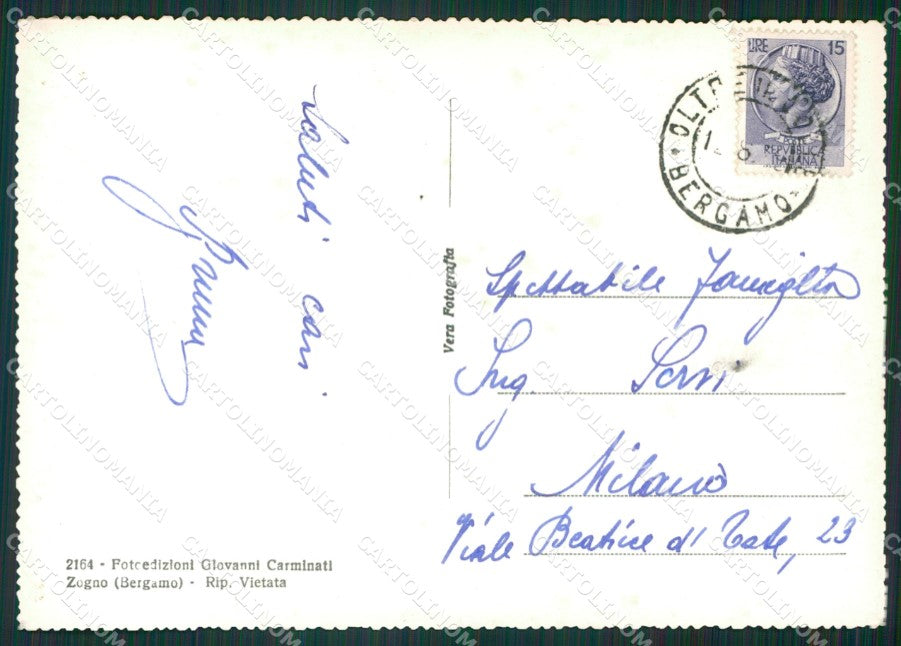 LIRE 15
REPVBBLICA
ITALIANA
BERGAMO
Saluti cari
Vera Fotografia
Spettabile Famiglia
Ing.
Milano
Viale Beatrice d'Este, 23
2164 - Fotoedizioni Giovanni Carminati
Zogno (Bergamo) - Rip. Vietata
CARTOLINOMANIA